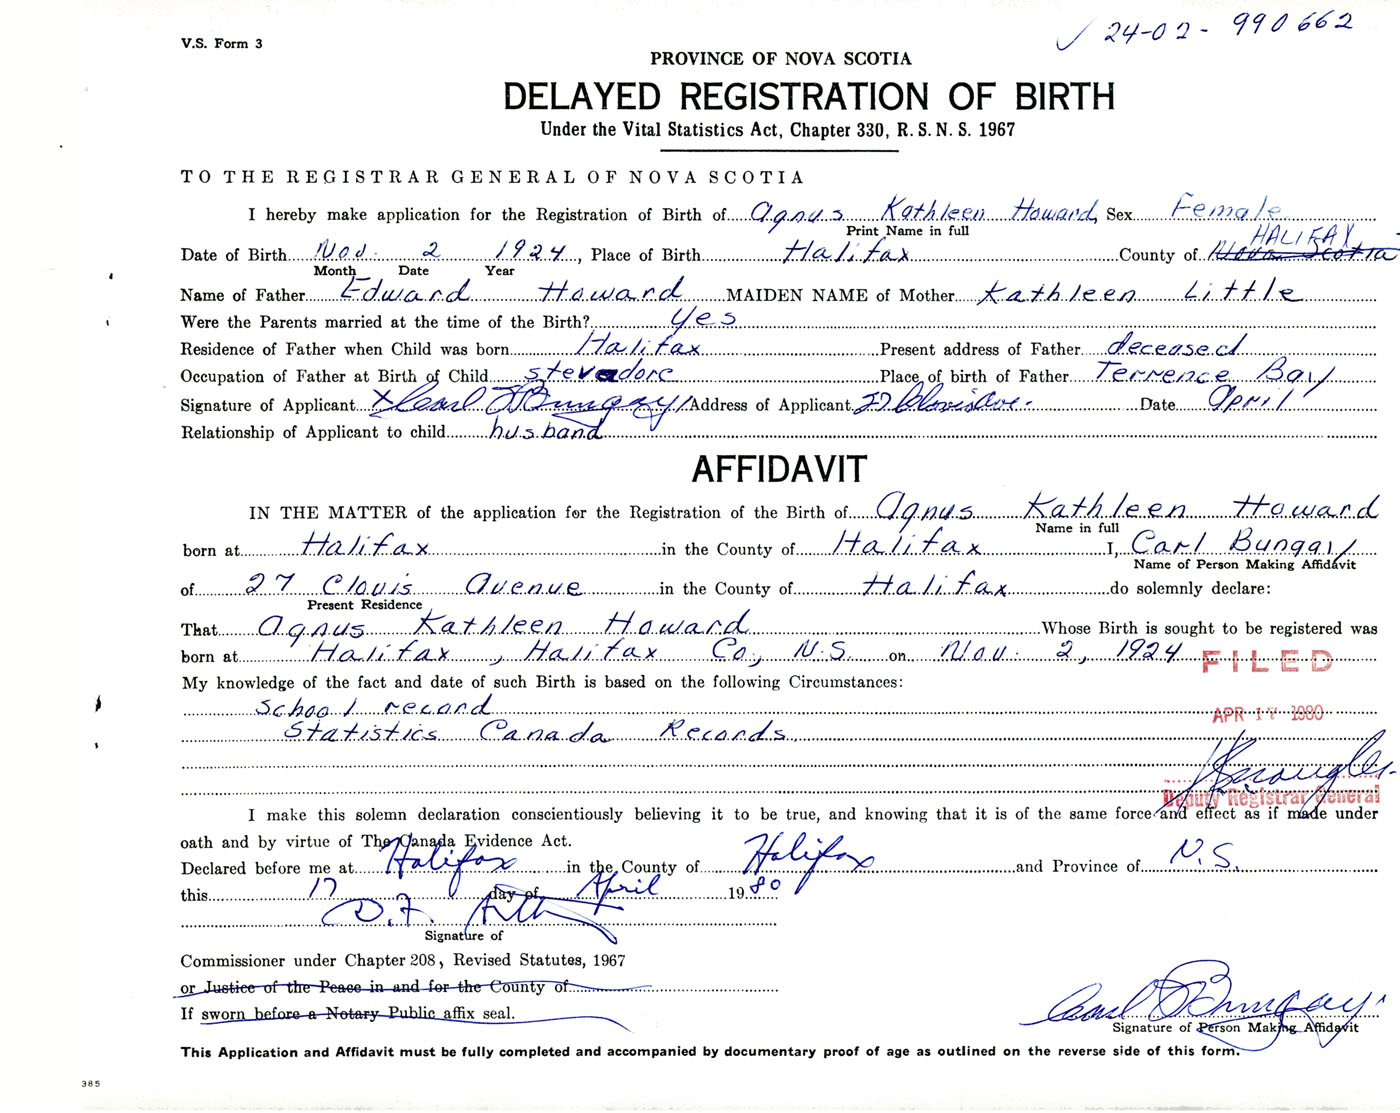 V.S. Form 3
✓ 24-02-990662
PROVINCE OF NOVA SCOTIA
DELAYED REGISTRATION OF BIRTH
Under the Vital Statistics Act, Chapter 330, R. S. N. S. 1967
TO THE REGISTRAR GENERAL OF NOVA SCOTIA
I hereby make application for the Registration of Birth of Agnus Kathleen Howard, Sex Female
Print Name in full
HALIFAX
Date of Birth Nov. 2 1924, Place of Birth Halifax County of Nova Scotia
Month Date Year
Name of Father Edward Howard MAIDEN NAME of Mother Kathleen Little
Were the Parents married at the time of the Birth? yes
Residence of Father when Child was born Halifax Present address of Father deceased
Occupation of Father at Birth of Child stevadore Place of birth of Father Terrence Bay
Signature of Applicant X Carl Bungay Address of Applicant 27 Clovis Ave. Date April
Relationship of Applicant to child husband
AFFIDAVIT
IN THE MATTER of the application for the Registration of the Birth of Agnus Kathleen Howard
Name in full
born at Halifax in the County of Halifax I, Carl Bungay
Name of Person Making Affidavit
of 27 Clovis Avenue in the County of Halifax do solemnly declare:
Present Residence
That Agnus Kathleen Howard Whose Birth is sought to be registered was
born at Halifax, Halifax Co., N.S. on Nov. 2, 1924
FILED
My knowledge of the fact and date of such Birth is based on the following Circumstances:
School record
APR 17 1980
Statistics Canada Records
Deputy Registrar General
I make this solemn declaration conscientiously believing it to be true, and knowing that it is of the same force and effect as if made under
oath and by virtue of The Canada Evidence Act.
Declared before me at Halifax in the County of Halifax and Province of N.S.
this 17 day of April 1980
D.F.
Signature of
Commissioner under Chapter 208, Revised Statutes, 1967
or Justice of the Peace in and for the County of
If sworn before a Notary Public affix seal.
Carl Bungay
Signature of Person Making Affidavit
This Application and Affidavit must be fully completed and accompanied by documentary proof of age as outlined on the reverse side of this form.
385